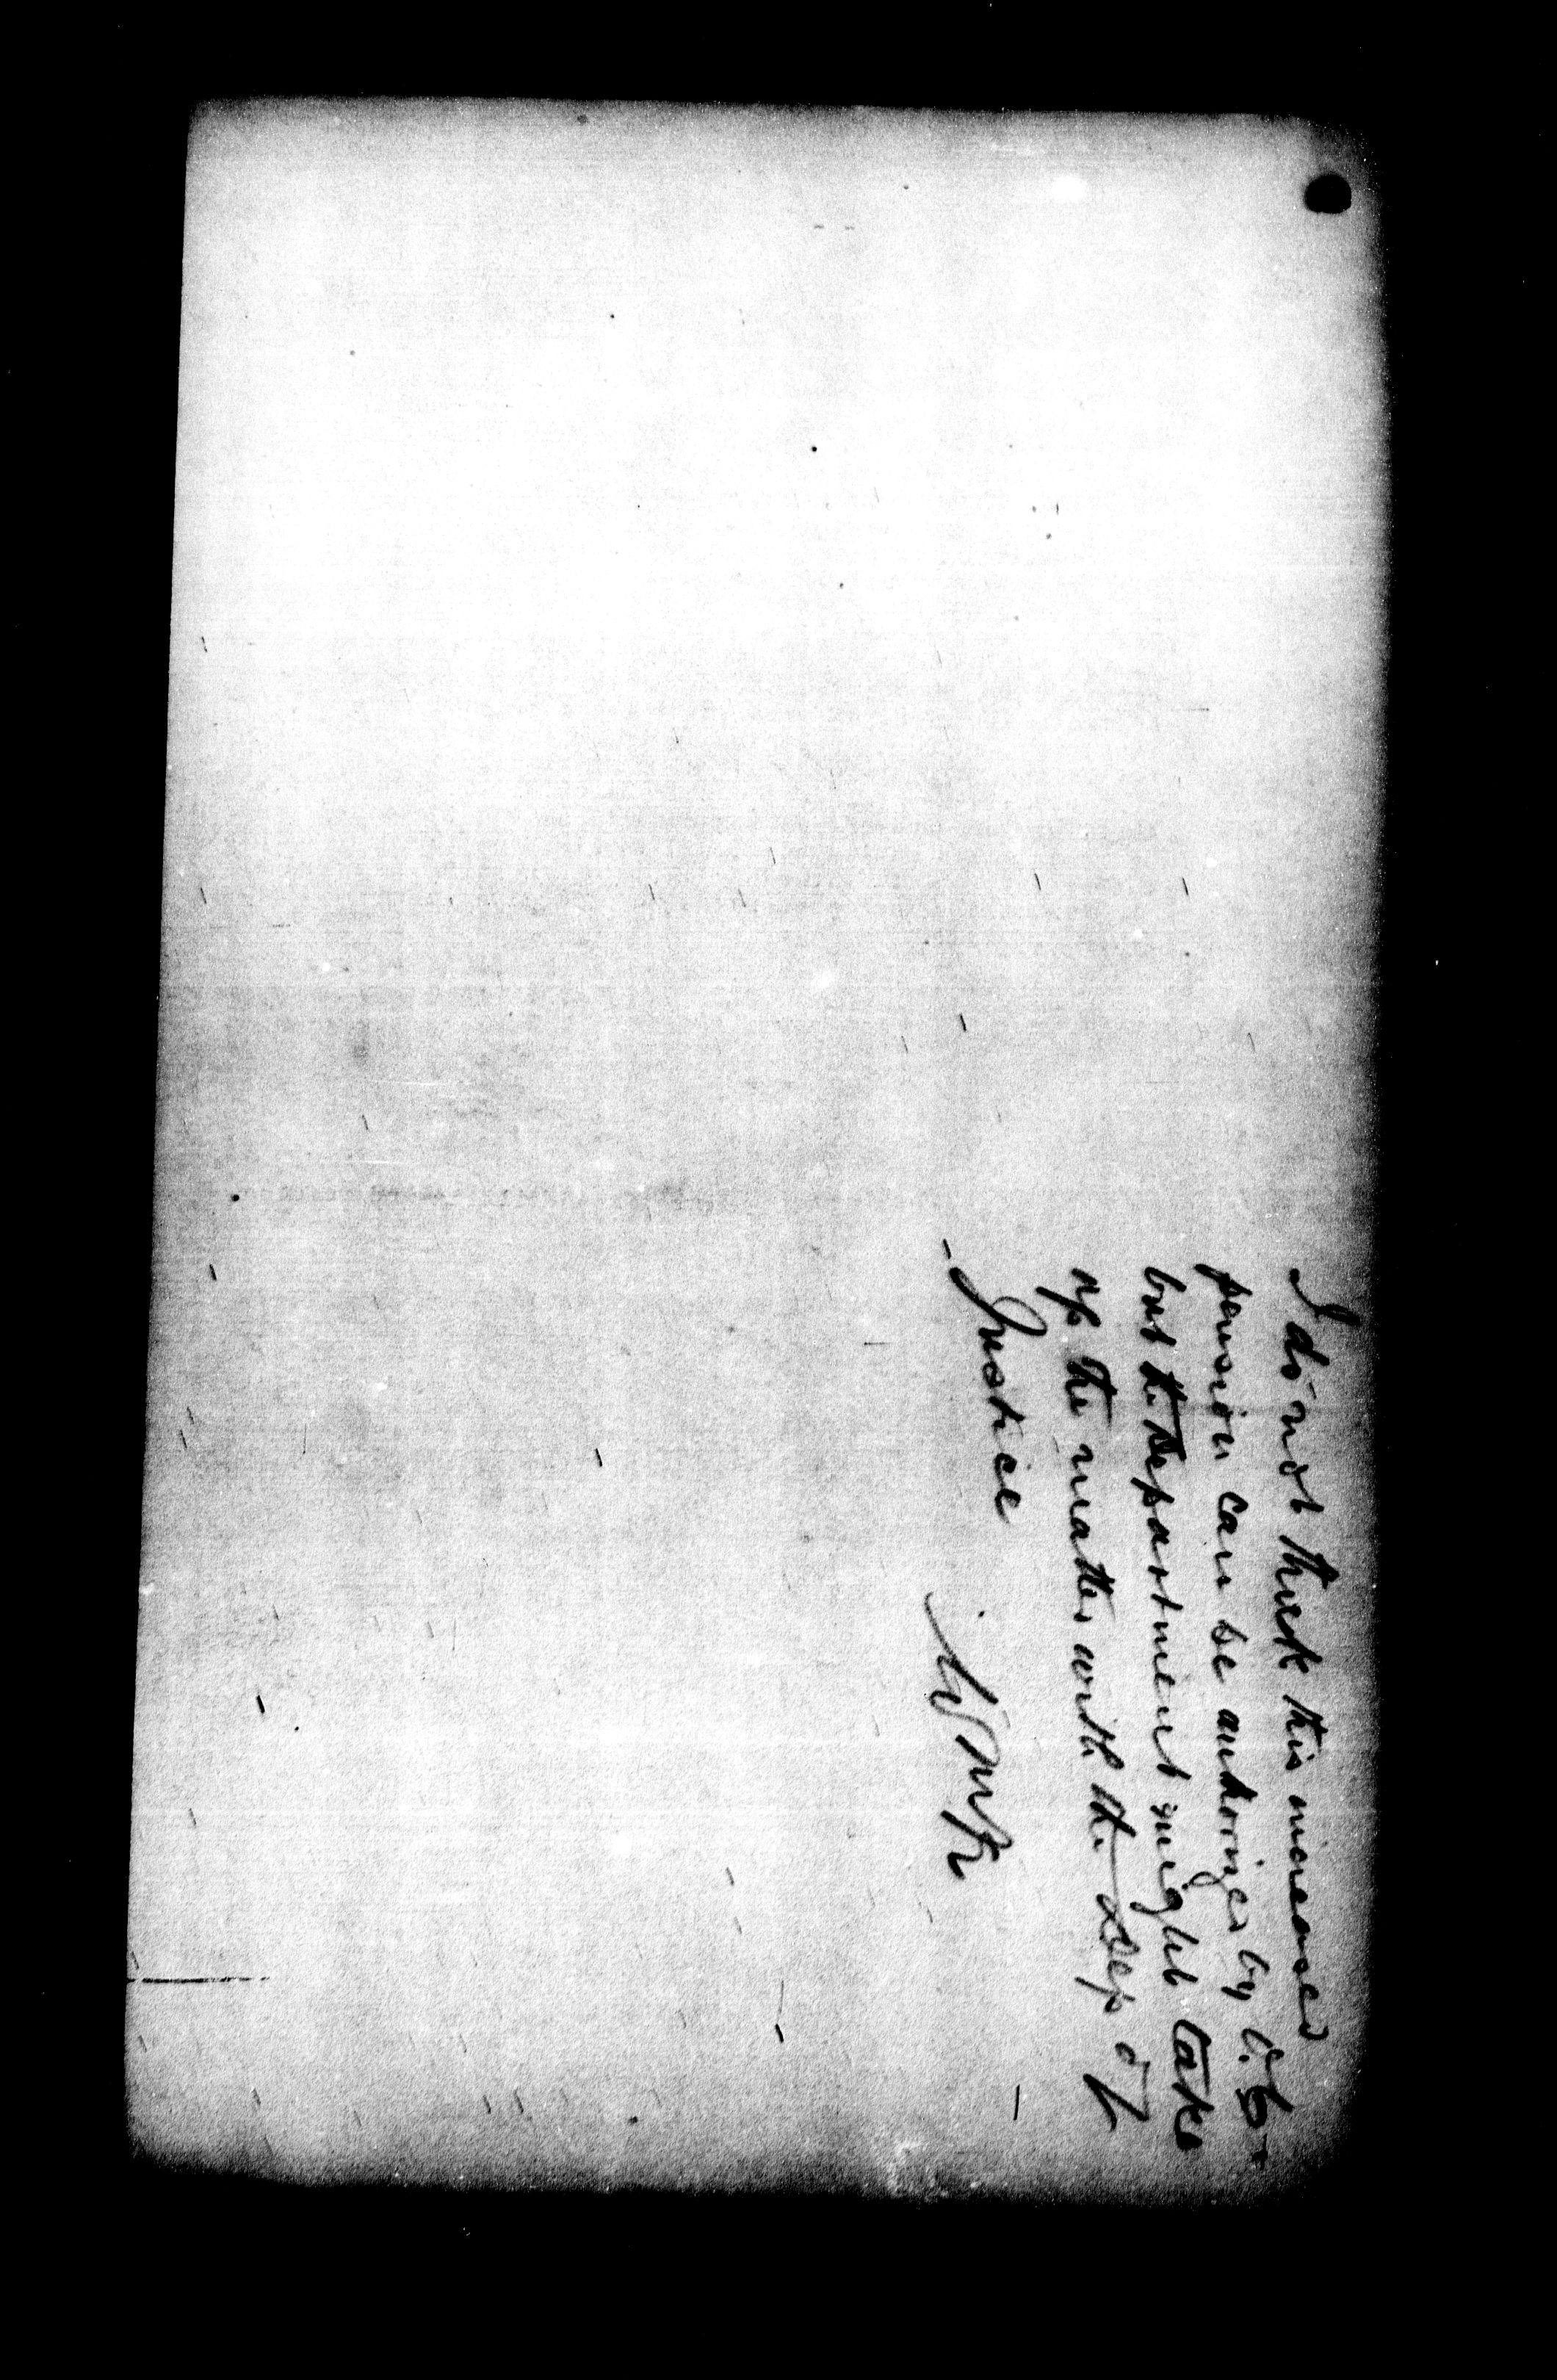 I do not think this increased
pension can be authorized by O.C.
but the Department might take
up the matter with the Dep of
Justice